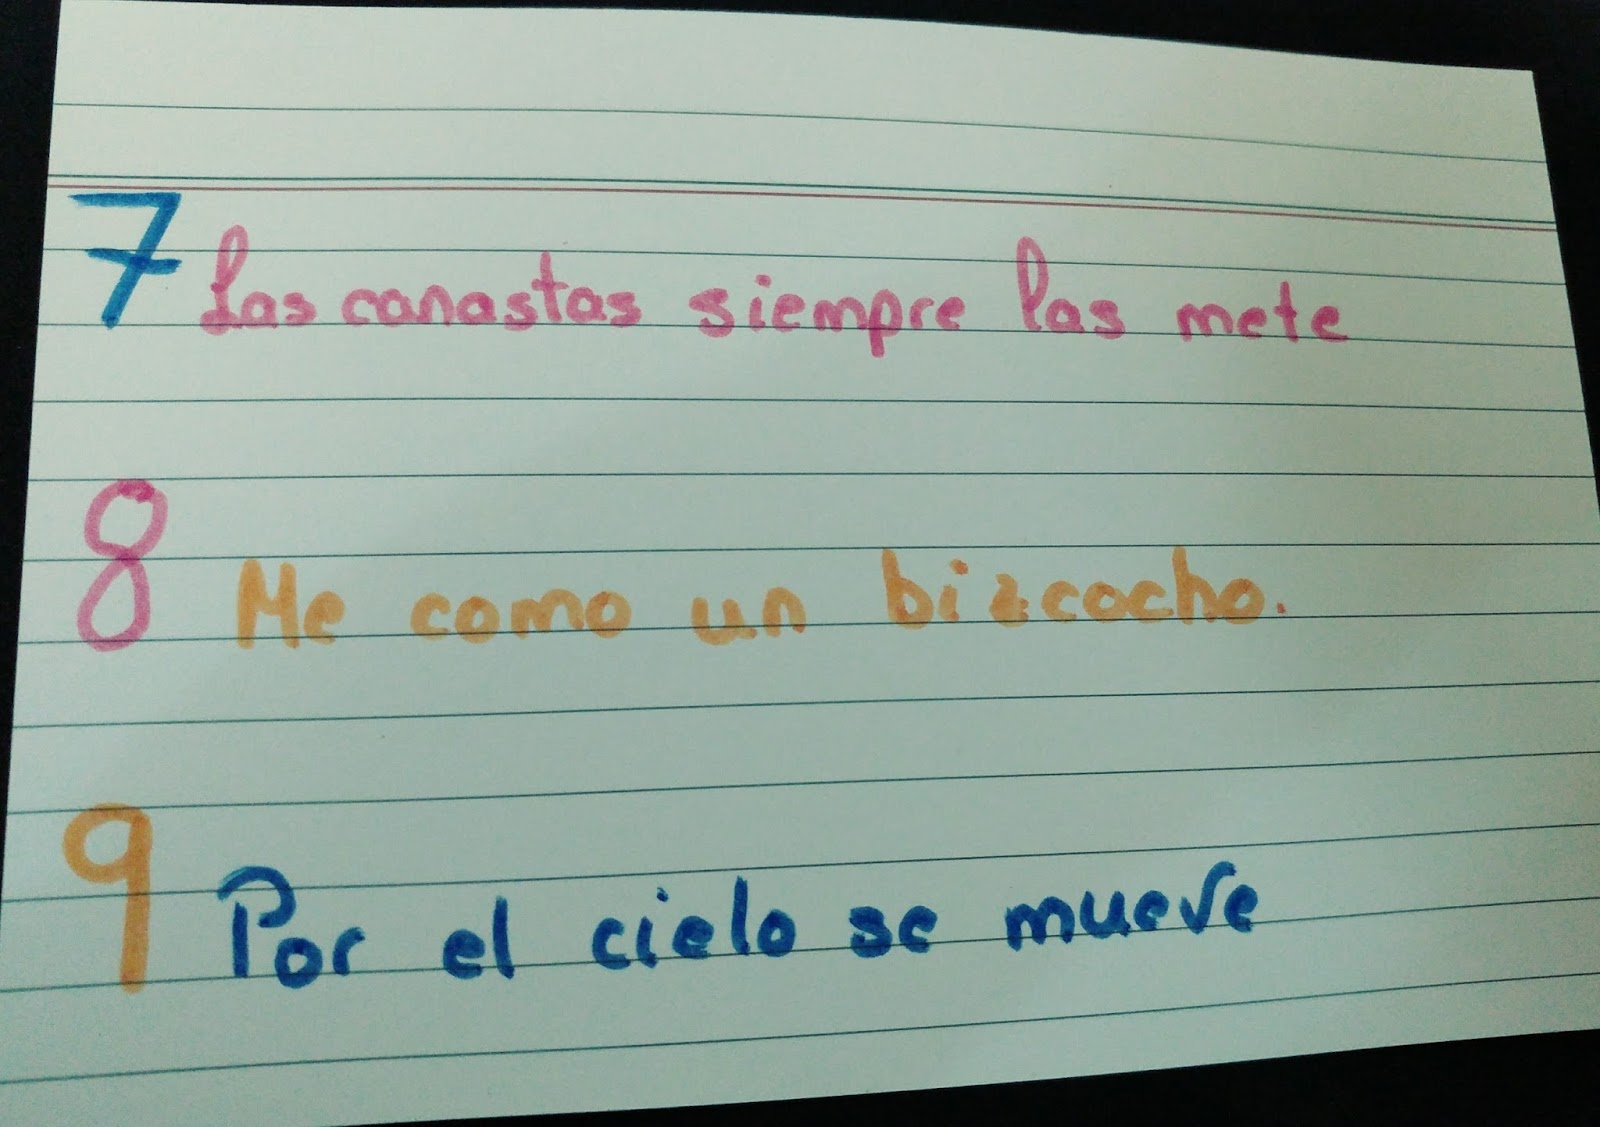 7 Las canastas siempre las mete
8 Me como un bizcocho.
9 Por el cielo se mueve